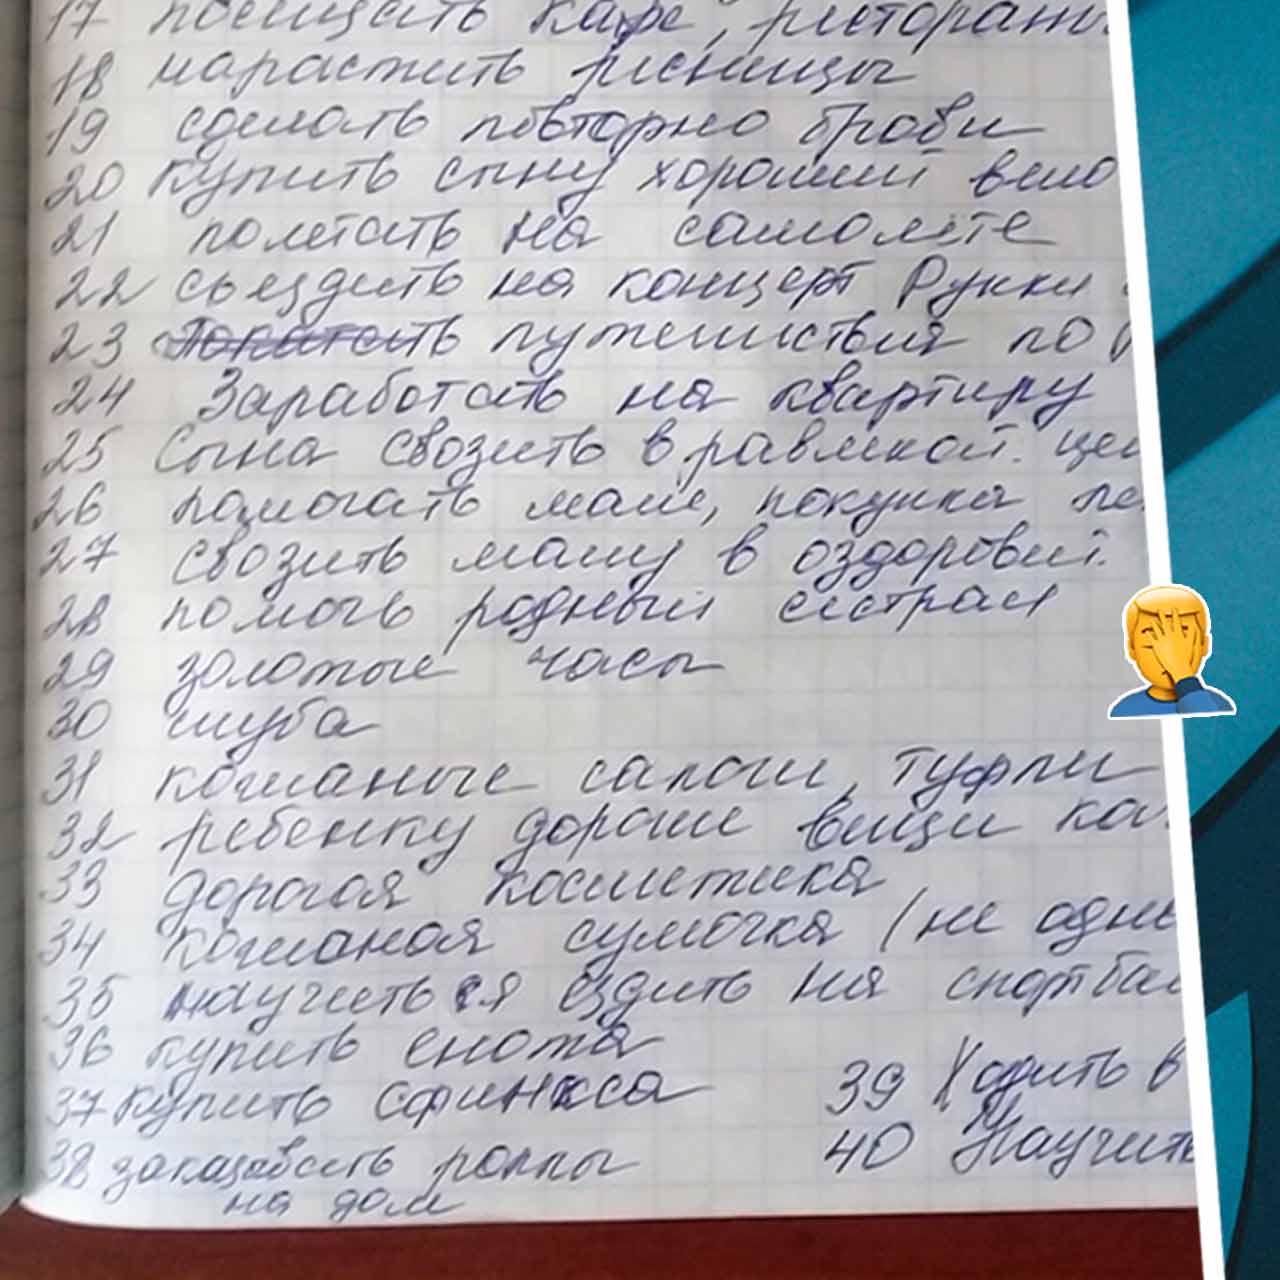 17 посещать кафе, рестораны
18 нарастить ресницы
19 сделать повторно брови
20 Купить сыну хороший вело
21 полетать на самолете
22 съездить на концерт Рукки
23 путешествия по
24 Заработать на квартиру
25 Сына свозить в развлекат. цен
26 помогать маме, покупка
27 свозить маму в оздоровит.
28 помочь родным сестрам
29 золотые часы
30 шуба
31 кожаные сапоги, туфли
32 ребенку дорогие вещи
33 дорогая косметика
34 кожаная сумочка (не одна
35 научиться ездить на спортбай
36 купить енота
37 Купить сфинкса
38 заказывать роллы
на дом
39 Ходить в
40 Научить